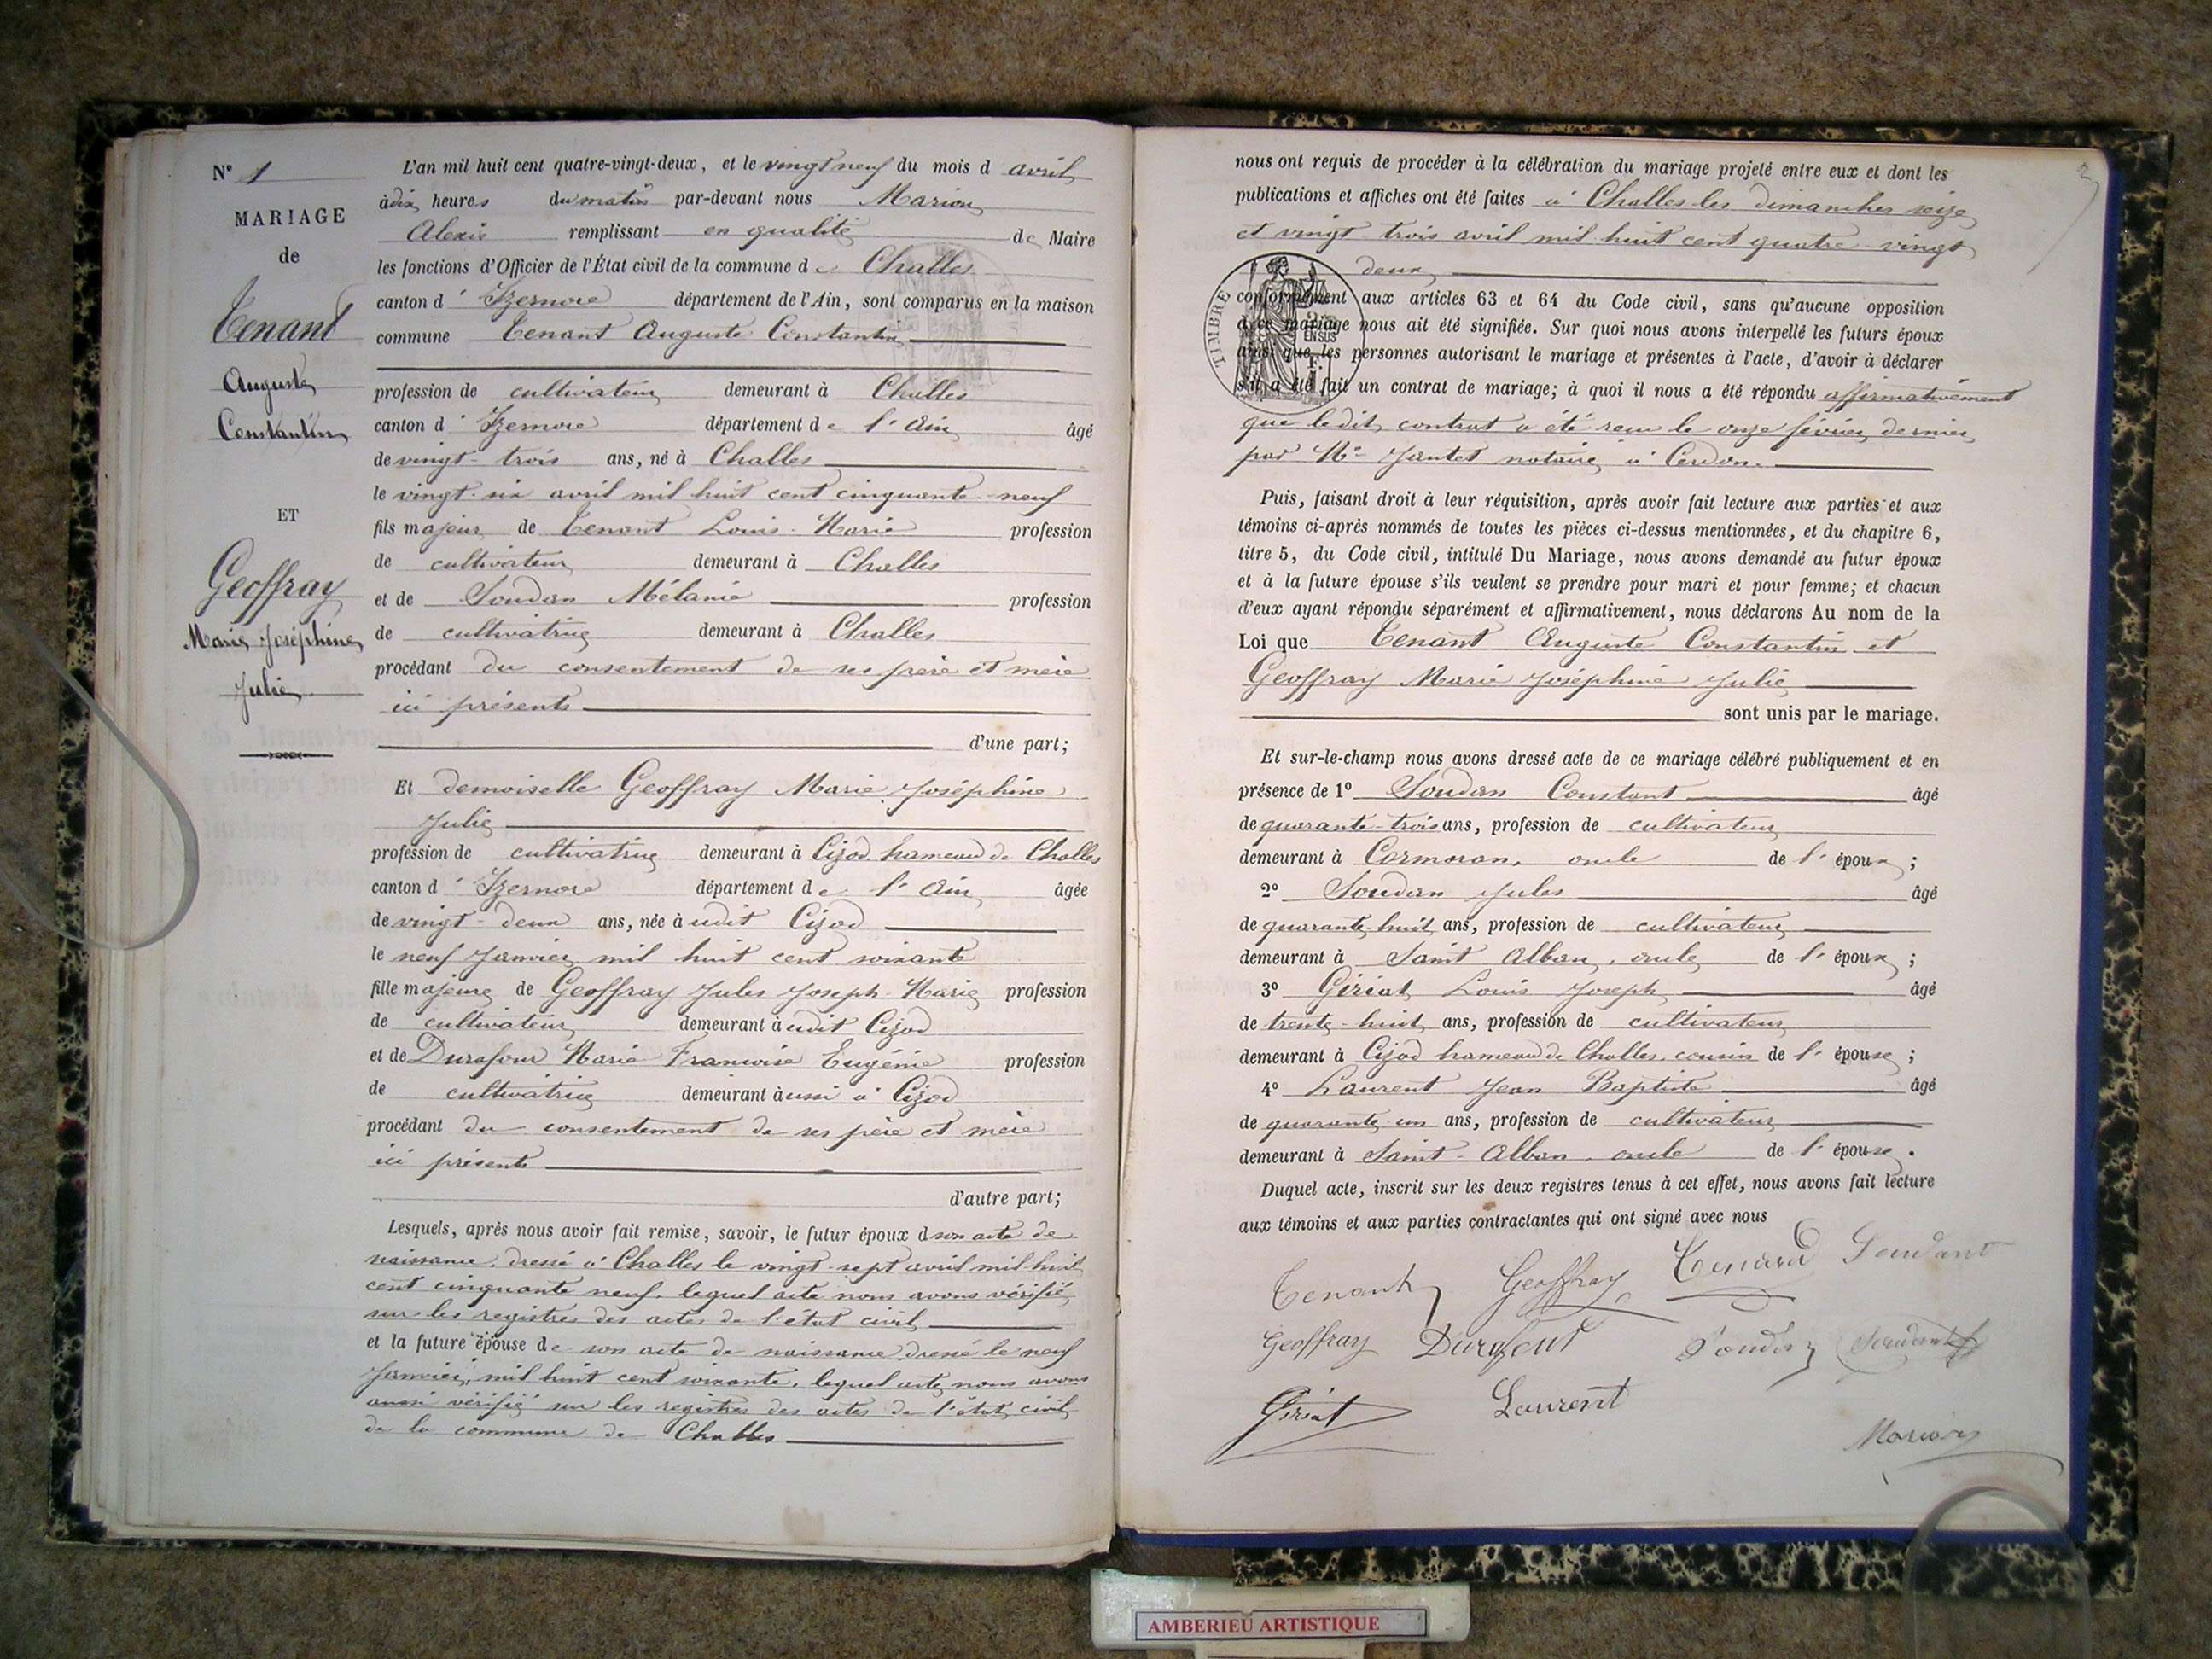 N° 1
MARIAGE
de
Tenant
Auguste
Constantin
ET
Geoffray
Marie Joséphine
Julie
L'an mil huit cent quatre-vingt-deux, et le vingt neuf du mois d avril
à dix heures du matin par-devant nous Marion
Alexis remplissant en qualité de Maire
les fonctions d'Officier de l'État civil de la commune de Challes
canton d' Izernore département de l'Ain, sont comparus en la maison
commune Tenant Auguste Constantin
profession de cultivateur demeurant à Challes
canton d' Izernore département de l'Ain âgé
de vingt-trois ans, né à Challes
le vingt-six avril mil huit cent cinquante-neuf
fils majeur de Tenant Louis-Marie profession
de cultivateur demeurant à Challes
et de Soudan Mélanie profession
de cultivatrice demeurant à Challes
procédant du consentement de ses père et mère
ici présents
d'une part;
Et demoiselle Geoffray Marie Joséphine
Julie
profession de cultivatrice demeurant à Cizod hameau de Challes
canton d' Izernore département de l'Ain âgée
de vingt-deux ans, née à udit Cizod
le neuf Janvier mil huit cent soixante
fille majeure de Geoffray Jules Joseph-Marie profession
de cultivateur demeurant à udit Cizod
et de Durafour Marie Francoise Eugénie profession
de cultivatrice demeurant àussi à Cizod
procédant du consentement de ses père et mère
ici présents
d'autre part;
Lesquels, après nous avoir fait remise, savoir, le futur époux d son acte de
naissance, dressé à Challes le vingt-sept avril mil huit
cent cinquante neuf, lequel acte nous avons vérifié
sur les registres des actes de l'état civil
et la future épouse de son acte de naissance dressé le neuf
Janvier, mil huit cent soixante, lequel acte nous avons
aussi vérifié sur les registres des actes de l'état civil
de la commune de Challes
nous ont requis de procéder à la célébration du mariage projeté entre eux et dont les
publications et affiches ont été faites à Challes les dimanches seize
et vingt-trois avril mil huit cent quatre-vingt
deux
TIMBRE
conformément aux articles 63 et 64 du Code civil, sans qu'aucune opposition
à ce mariage nous ait été signifiée. Sur quoi nous avons interpellé les futurs époux
ainsi que les personnes autorisant le mariage et présentes à l'acte, d'avoir à déclarer
s'il a été fait un contrat de mariage; à quoi il nous a été répondu affirmativement
que ledit contrat a été reçu le onze février dernier
par Me Jantet notaire à Cerdon.
Puis, faisant droit à leur réquisition, après avoir fait lecture aux parties et aux
témoins ci-après nommés de toutes les pièces ci-dessus mentionnées, et du chapitre 6,
titre 5, du Code civil, intitulé Du Mariage, nous avons demandé au futur époux
et à la future épouse s'ils veulent se prendre pour mari et pour femme; et chacun
d'eux ayant répondu séparément et affirmativement, nous déclarons Au nom de la
Loi que Tenant Auguste Constantin et
Geoffray Marie Joséphine Julie
sont unis par le mariage.
Et sur-le-champ nous avons dressé acte de ce mariage célébré publiquement et en
présence de 1° Soudan Constant âgé
de quarante-trois ans, profession de cultivateur
demeurant à Cormoran, oncle de l'époux;
2° Soudan Jules âgé
de quarante-huit ans, profession de cultivateur
demeurant à Saint Alban, oncle de l'époux;
3° Giriat Louis Joseph âgé
de trente-huit ans, profession de cultivateur
demeurant à Cizod hameau de Challes, cousin de l'épouse;
4° Laurent Jean Baptiste âgé
de quarante-un ans, profession de cultivateur
demeurant à Saint-Alban, oncle de l'épouse.
Duquel acte, inscrit sur les deux registres tenus à cet effet, nous avons fait lecture
aux témoins et aux parties contractantes qui ont signé avec nous
Tenant Geoffray Tenand Soudant
Geoffray Durafour Soudan Soudant
Giriat Laurent
Marion
AMBERIEU ARTISTIQUE